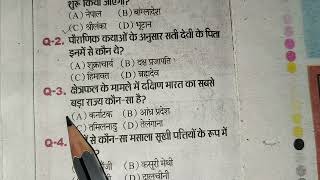 शुरू किया जाएगा?
(A) नेपाल (B) बांग्लादेश
(C) श्रीलंका (D) भूटान
Q-2. पौराणिक कथाओं के अनुसार सती देवी के पिता
इनमें से कौन थे?
(A) शुक्राचार्य (B) दक्ष प्रजापति
(C) हिमावत (D) ब्रह्मदेव
Q-3. क्षेत्रफल के मामले में दक्षिण भारत का सबसे
बड़ा राज्य कौन-सा है?
(A) कर्नाटक (B) आंध्र प्रदेश
(C) तमिलनाडु (D) तेलंगाना
Q-4. में से कौन-सा मसाला सूखी पत्तियों के रूप में
?
(B) कसूरी मेथी
(D) दालचीनी